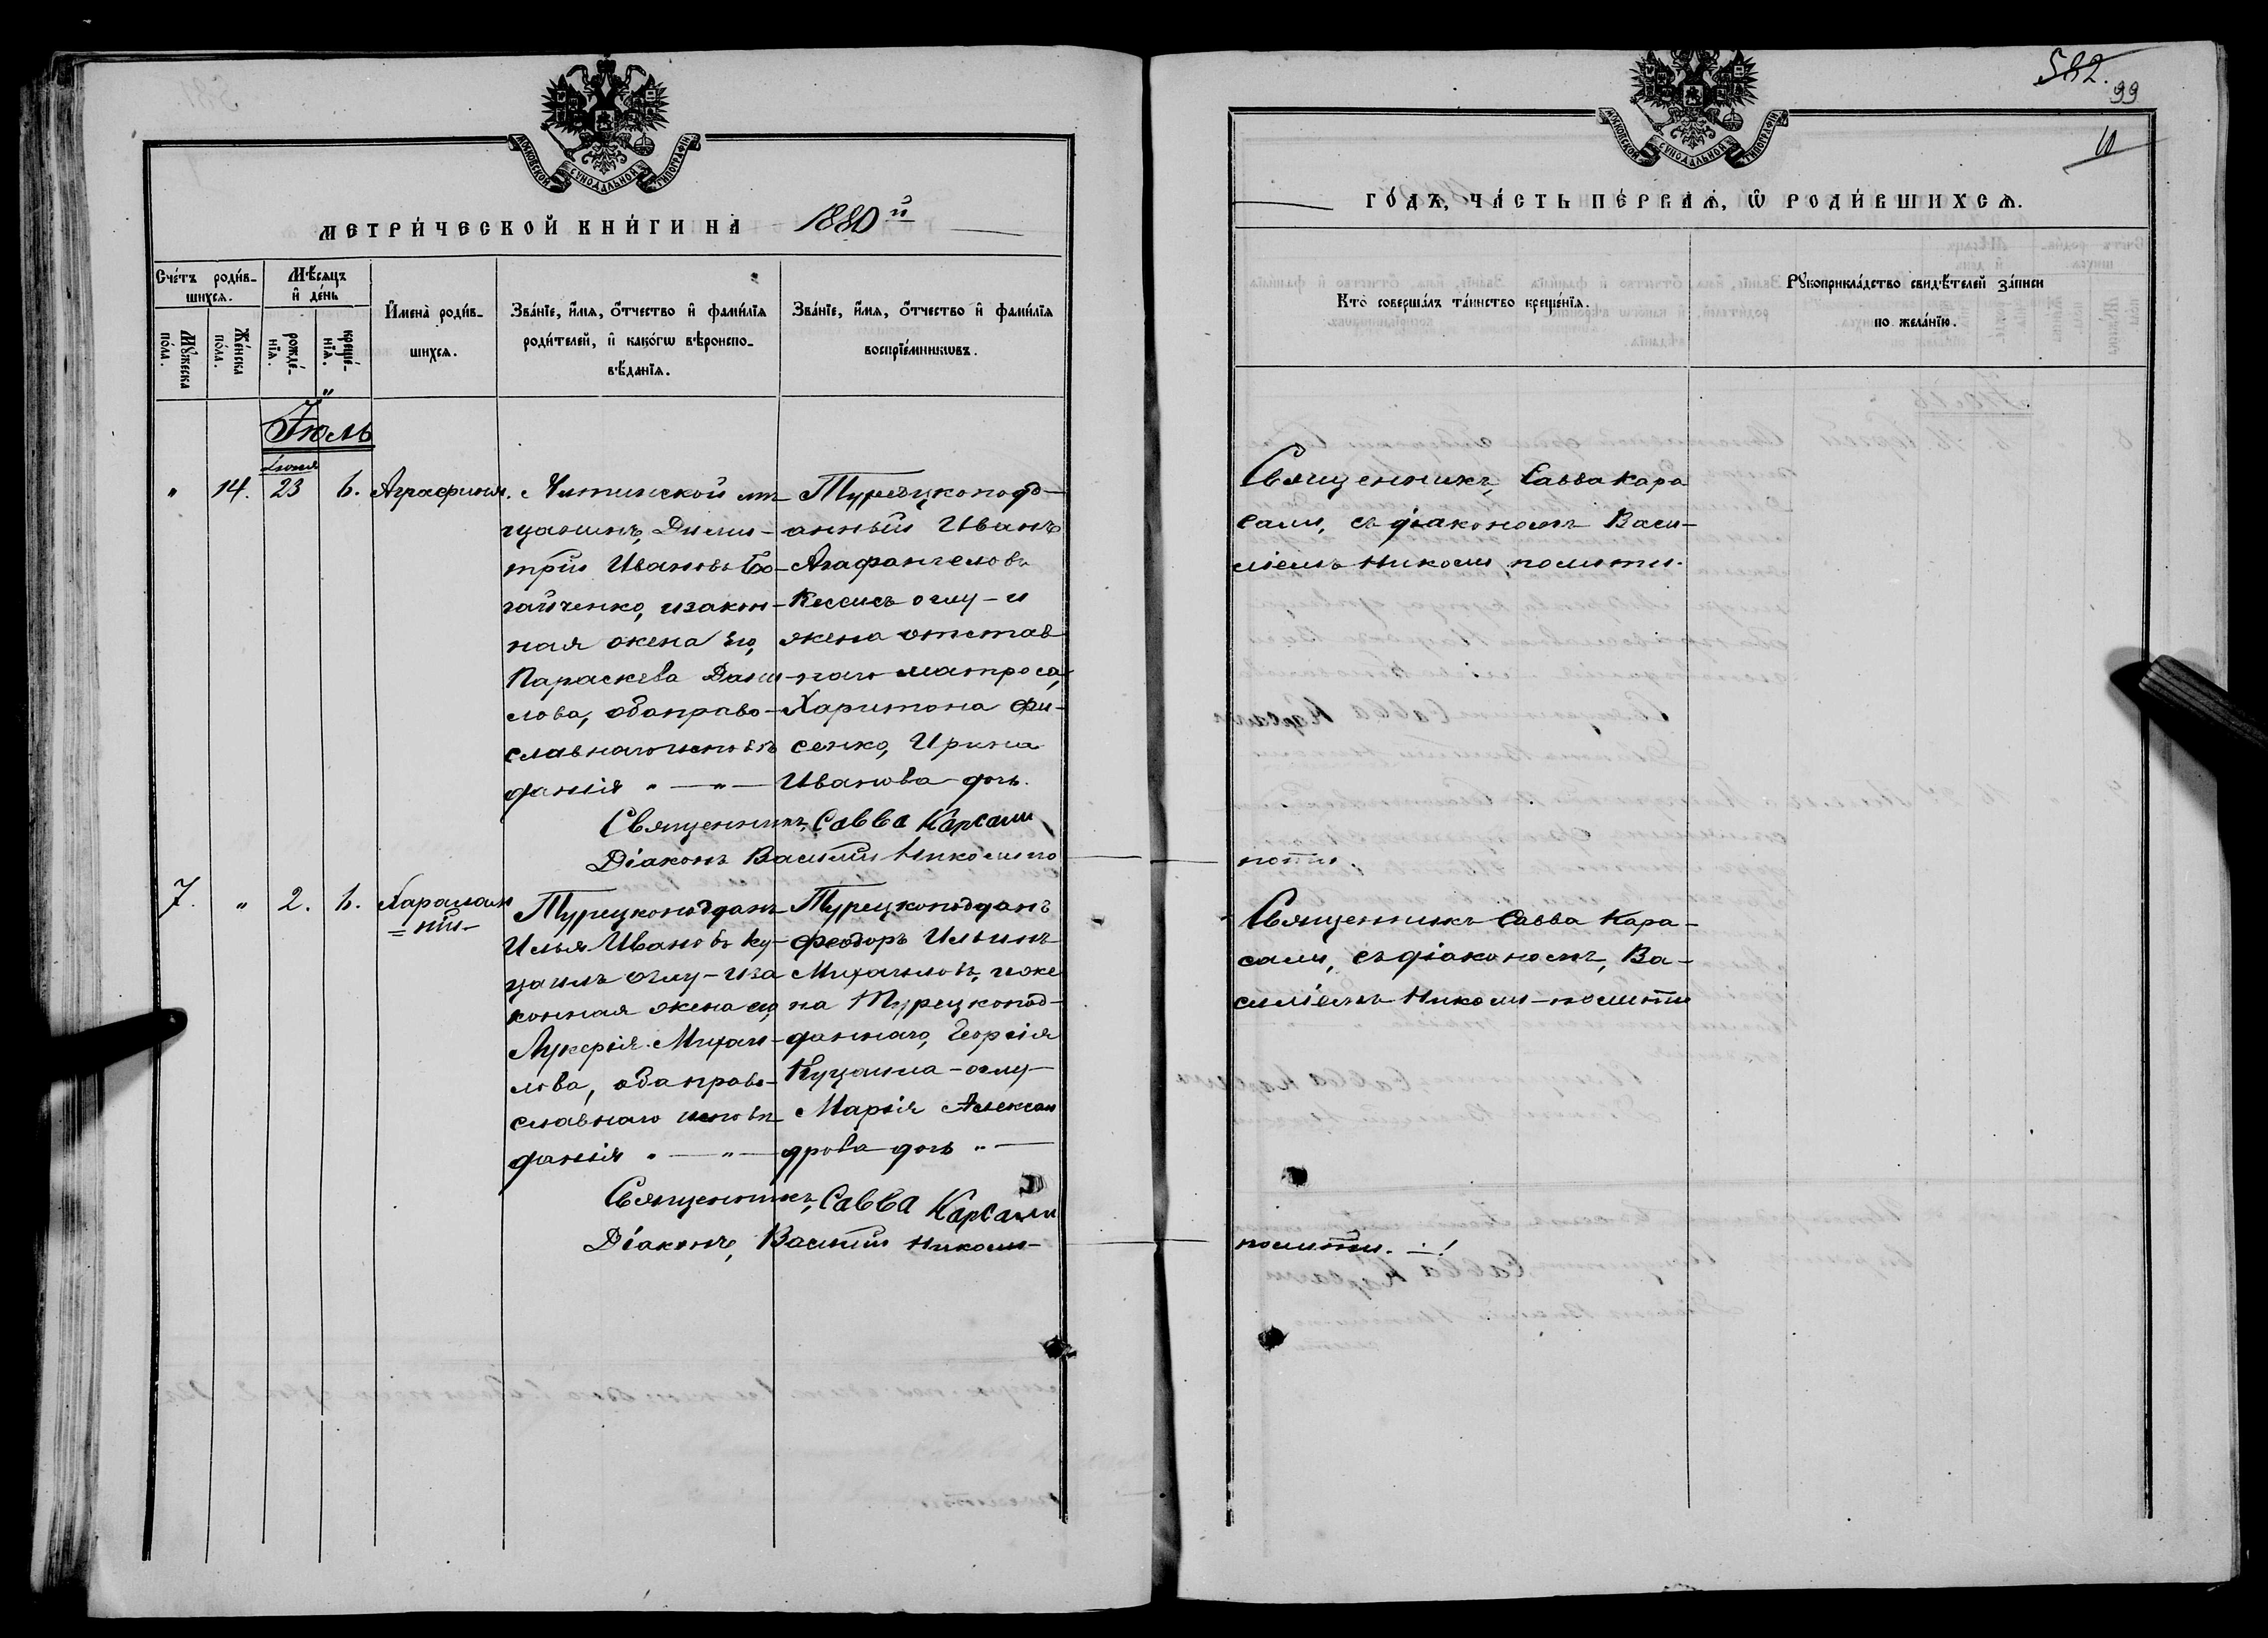 МОСКОВСКОЙ СѴНОДАЛЬНОЙ ТИПОГРАФІИ
МЕТРИ́ЧЕСКОЙ КНИ́ГИ НА 1880й
Сче́тъ роди́в-
шихсѧ.
Мꙋ́жеска по́ла.
Же́нска по́ла.
Мѣ́сѧцъ
и҆ де́нь
рожде́-
нїѧ.
креще́-
нїѧ.
И҆мена̀ роди́в-
шихсѧ.
Зва́нїе, и҆́мѧ, ѻ҆́тчество и҆ фами́лїѧ
роди́телей, и҆ како́гѡ вѣроиспо-
вѣ́данїѧ.
Зва́нїе, и҆́мѧ, ѻ҆́тчество и҆ фами́лїѧ
воспрїе́мникѡвъ.
Іюль
Іюня
" 14. 23 6. Аграфина.
Читинской мѣ-
щанинъ, Дими-
трій Ивановъ Бо-
гайченко, изакон-
ная жена его,
Параскева Дани-
лова, обаправо-
славнагоисповѣ
данія " — " —
Турецкоподд-
анный Иванъ
Агафангеловъ
Кессисъ оглу - и
жена отстав
наго матроса,
Харитона Фи-
сенко, Ирина
Иванова дочь.
Священникъ, Савва Карсали
Діаконъ Василій Николипо
7. " 2. 6. Харалам
пій
Турецкоподдан
Илья Ивановъ Ку-
цаилъ оглу - иза
конная жена его,
Лукерія Михаи-
лова, обаправо-
славнаго исповѣ
данія " — " —
Турецкоподданъ
Феодоръ Ильинъ
Михаиловъ, ижe
на Турецкопод-
даннаго, Георгія
Куцаила - оглу -
Марія Алексан
дрова дочь " —
Священникъ, Савва Карсали
Діаконъ, Василій Николи-
582.
99
МОСКОВСКОЙ СѴНОДАЛЬНОЙ ТИПОГРАФІИ
ГО́ДЪ, ЧА́СТЬ ПЕ́РВАѦ, Ѡ҆ РОДИ́ВШИХСѦ.
Кто̀ соверша́лъ та́инство креще́нїѧ.
Рꙋкоприкла́дство свидѣ́телей за́писи
по жела́нїю.
Священникъ, Савва Кара
сали, съ діакономъ Васи-
ліемъ Николи полити.
полити.
Священникъ Савва Кара-
сали, съ діакономъ, Ва-
силіемъ Николи-полити
политіи.